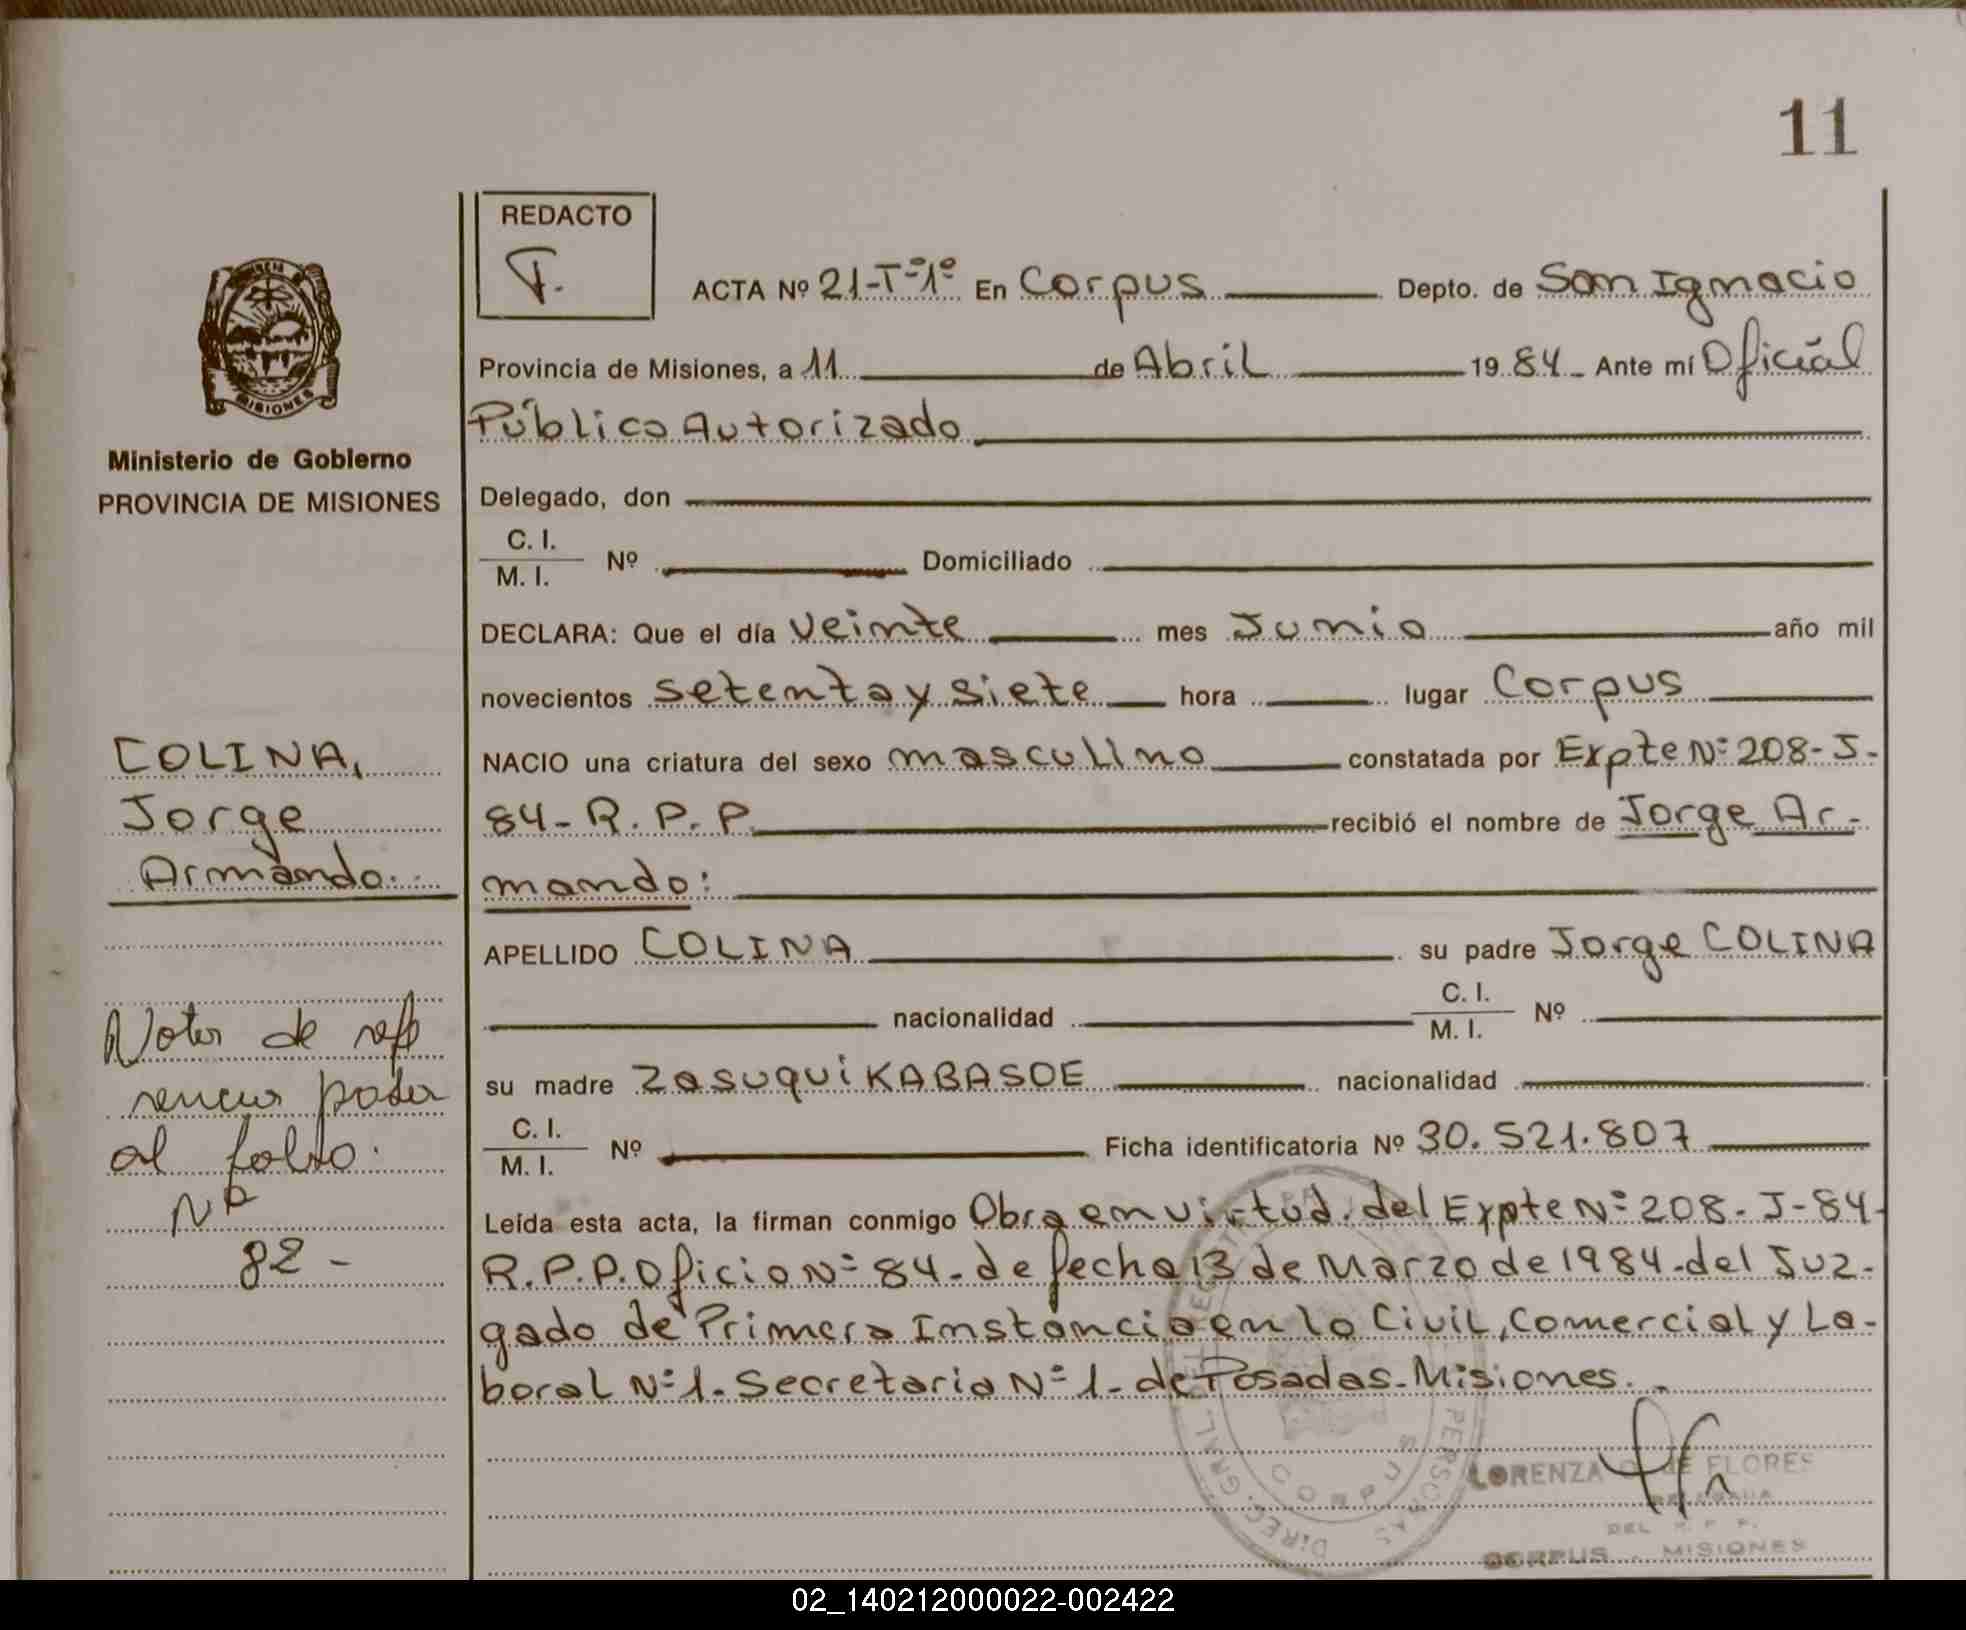 11
REDACTO
ACTA Nº 21-Tº1º En Corpus Depto. de San Ignacio
Provincia de Misiones, a 11 de Abril 1984 Ante mí Oficial
Público Autorizado
Ministerio de Gobierno
PROVINCIA DE MISIONES
MISIONES
Delegado, don
C. I.
M. I. Nº Domiciliado
DECLARA: Que el día veinte mes Junio año mil
novecientos setenta y siete hora lugar Corpus
NACIO una criatura del sexo masculino constatada por Expte Nº 208-J-
84-R.P.P. recibió el nombre de Jorge Ar-
mando:
COLINA,
Jorge
Armando.
APELLIDO COLINA su padre Jorge COLINA
nacionalidad C. I.
M. I. Nº
su madre Zasuqui KABASOE nacionalidad
C. I.
M. I. Nº Ficha identificatoria Nº 30.521.807
Leída esta acta, la firman conmigo Obra en virtud del Expte Nº 208-J-84-
R.P.P. Oficio Nº 84-de fecha 13 de Marzo de 1984-del Juz-
gado de Primera Instancia en lo Civil, Comercial y La-
boral Nº 1-Secretaria Nº 1-de Posadas-Misiones.
de
al folio
Nº
82-
LORENZA DE FLORES
DEL R. P. P.
CORPUS - MISIONES
02_140212000022-002422